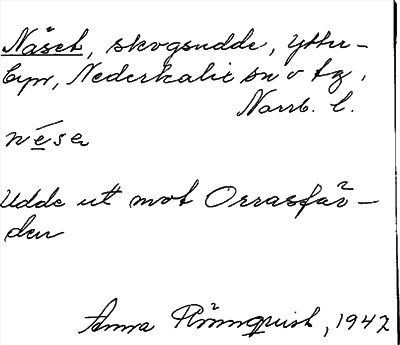 Näset, skogsudde, Ytter-
byn, Nederkalix sn o tg,
Norrb. l.
nẹ́sẹ
Udde ut mot Orrasfjär-
den
Anna Rönnquist, 1942